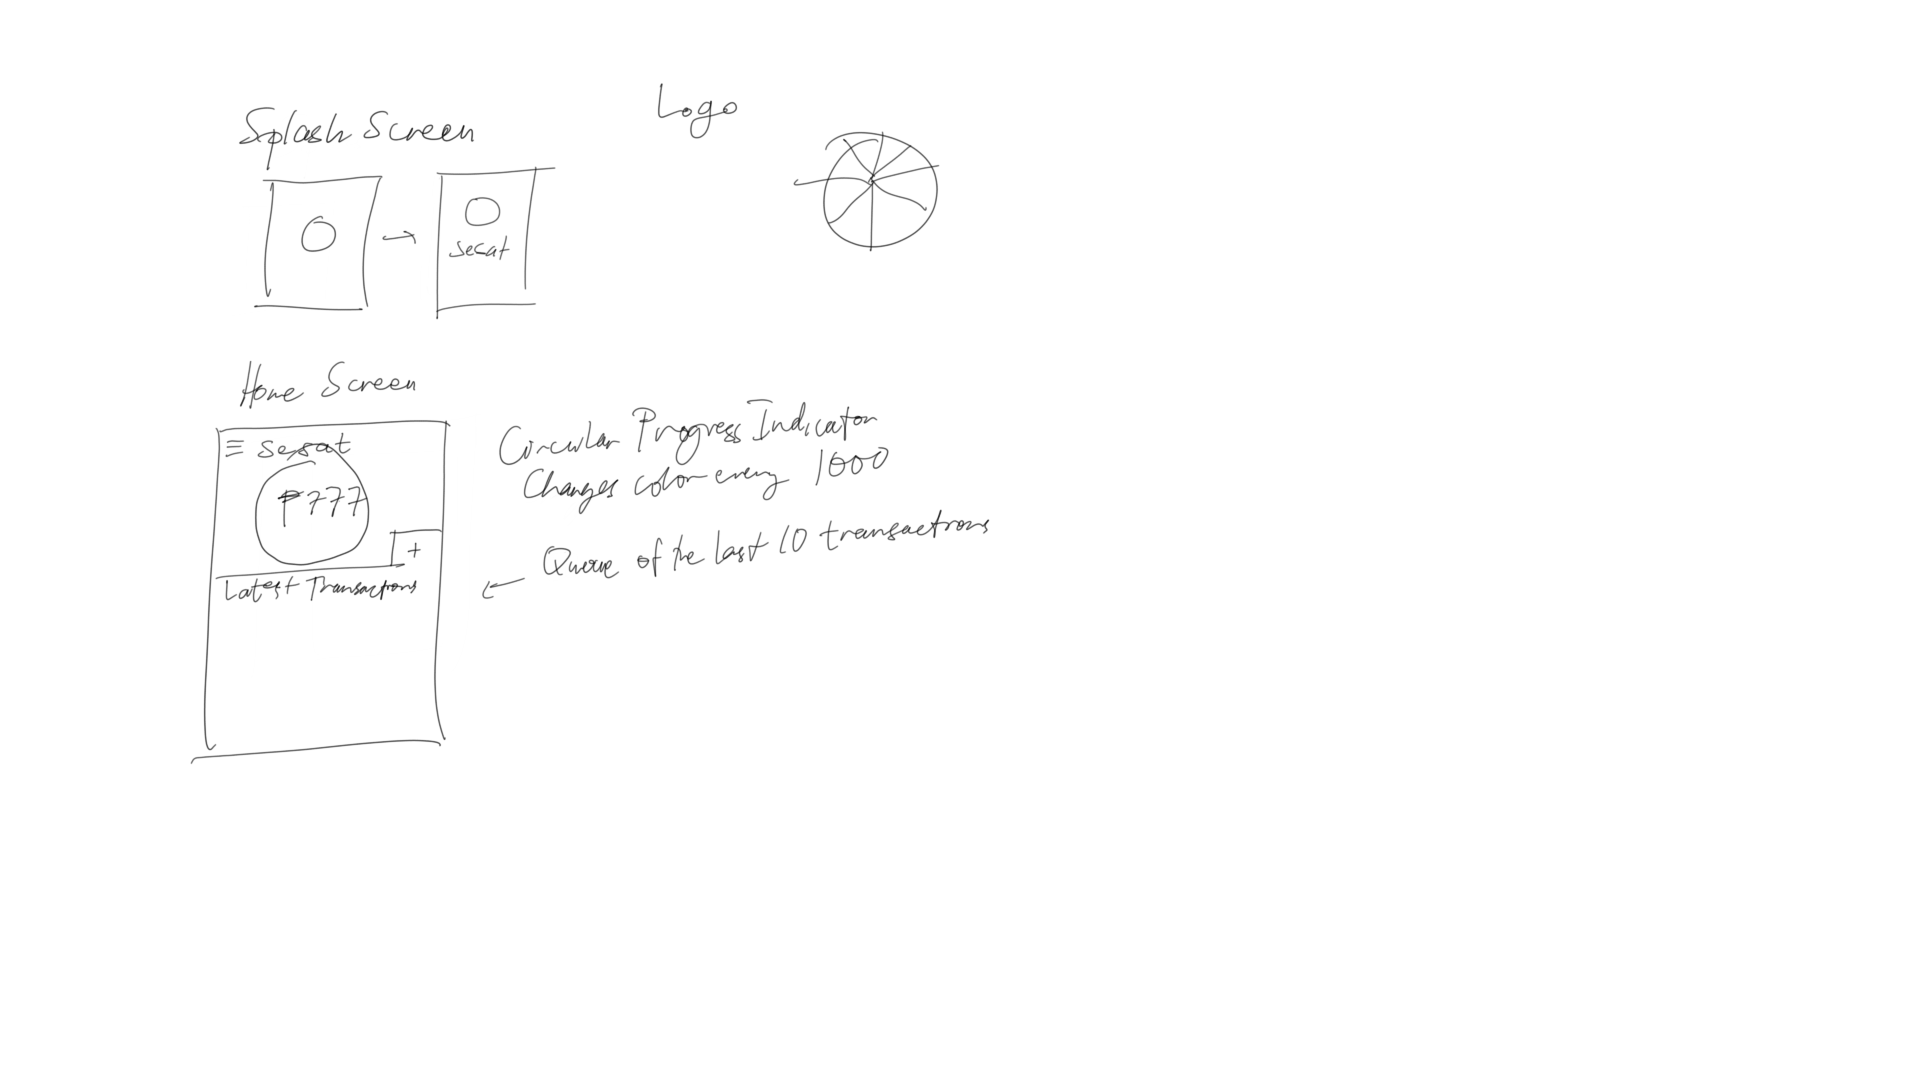 Logo
Splash Screen
sesat
Home Screen
≡ sesat
₱777
+
Latest Transactions
Circular Progress Indicator
Changes color every 1000
← Queue of the last 10 transactions